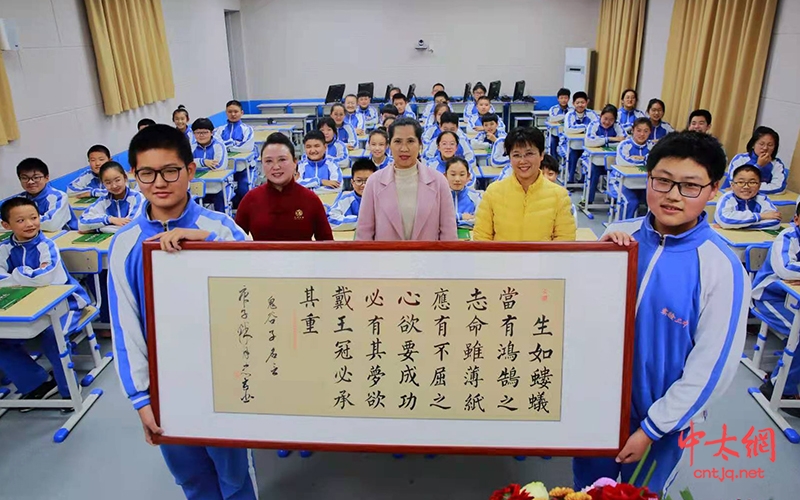 生如螻蟻
當有鴻鵠之
志命雖薄紙
應有不屈之
心欲要成功
必有其夢欲
戴王冠必承
其重
鬼谷子名言
中太網
cntjq.net
中太網
cntjq.net